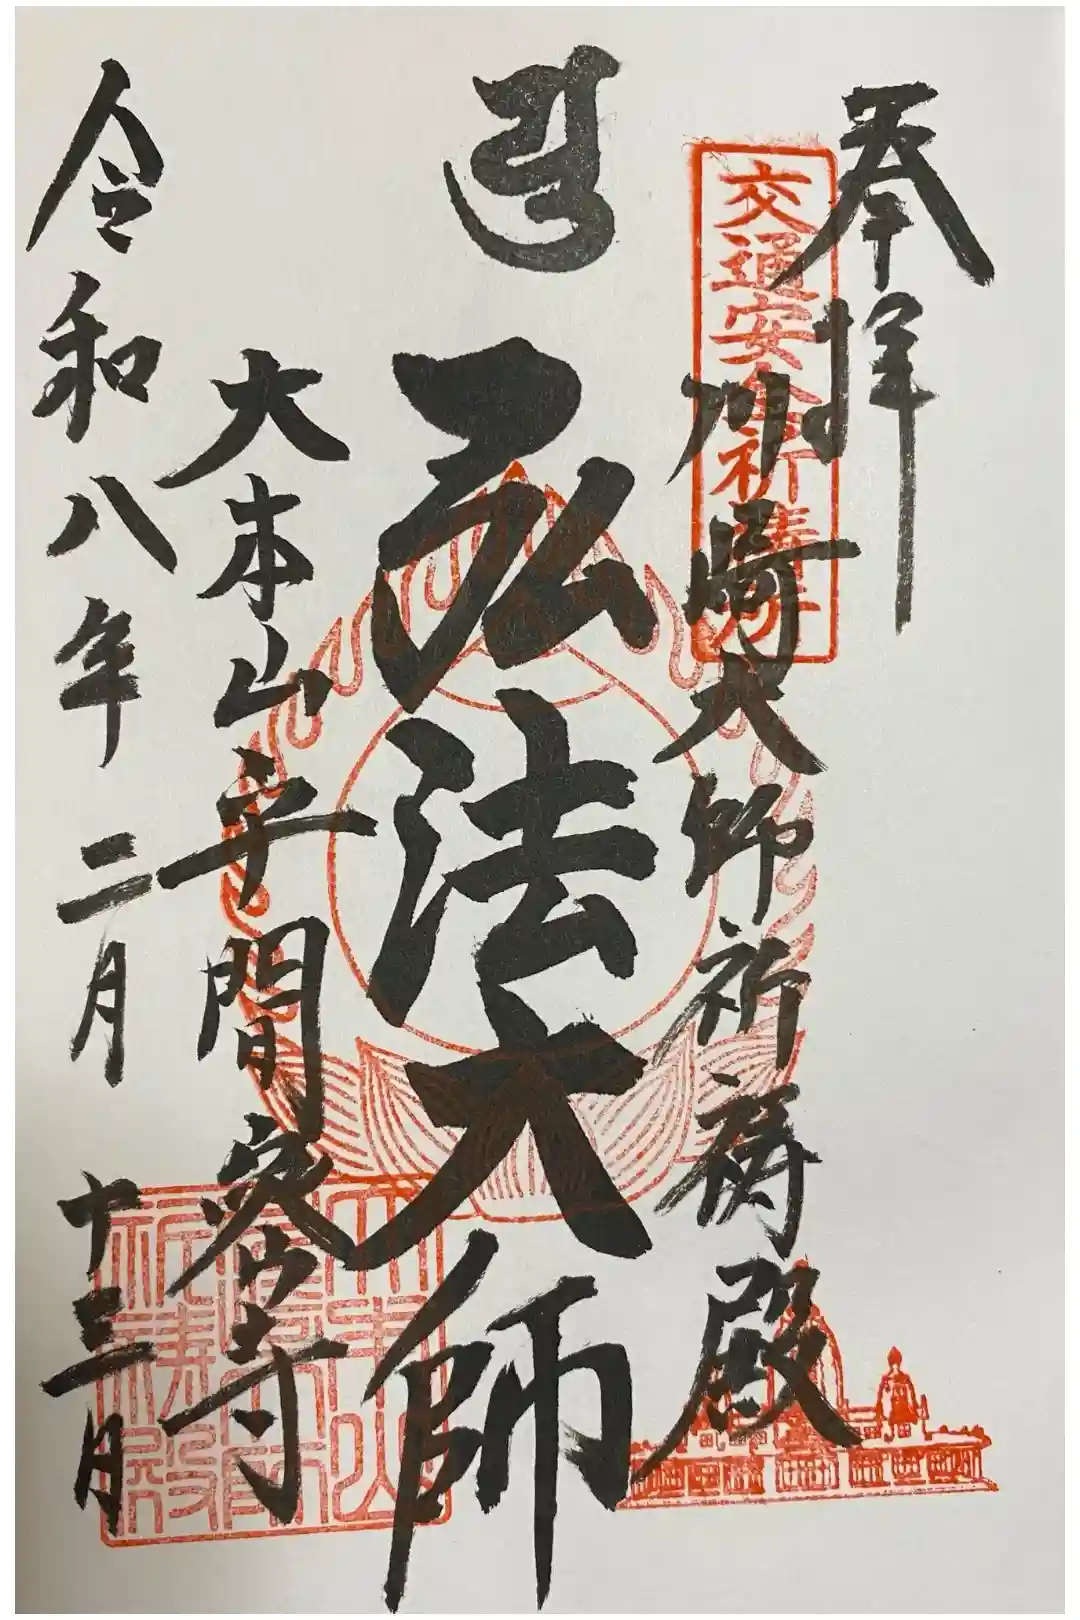 奉拝
交通安全祈
川崎大師祈祷殿
弘法大師
大本山平間密寺
令和八年二月十三日
大本山
祈祷殿